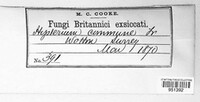 M. C. COOKE.
Fungi Britannici exsiccati.
Hysterium commune Fr
Wotton Surrey
Mar 1 1870
No. 391
551392